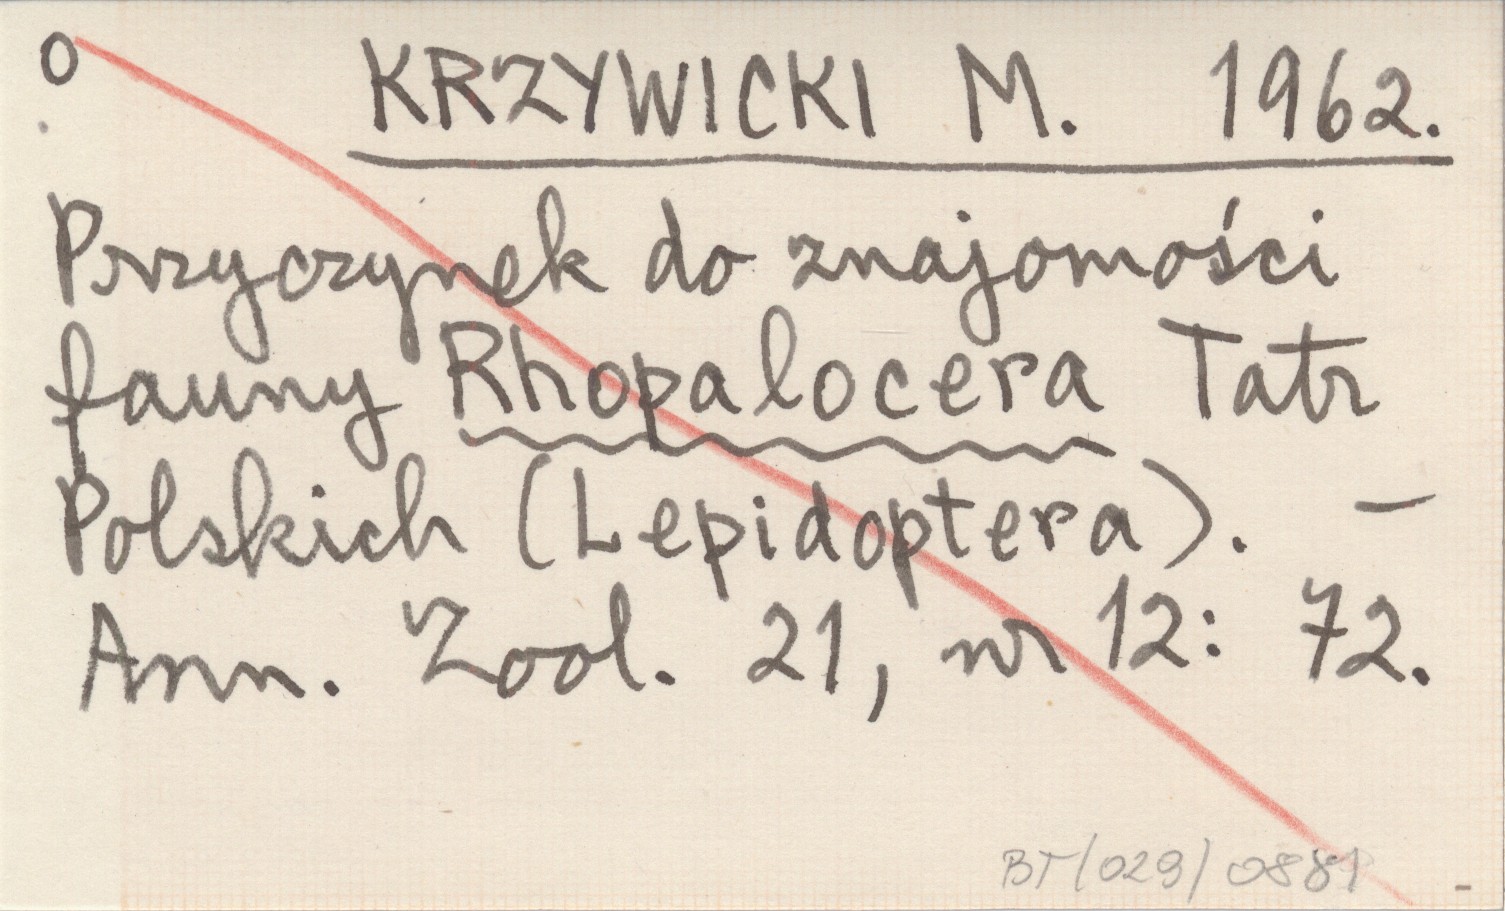 o KRZYWICKI M. 1962.
Przyczynek do znajomości
fauny Rhopalocera Tatr
Polskich (Lepidoptera). –
Ann. Zool. 21, nr 12: 72.
BT/029/0881